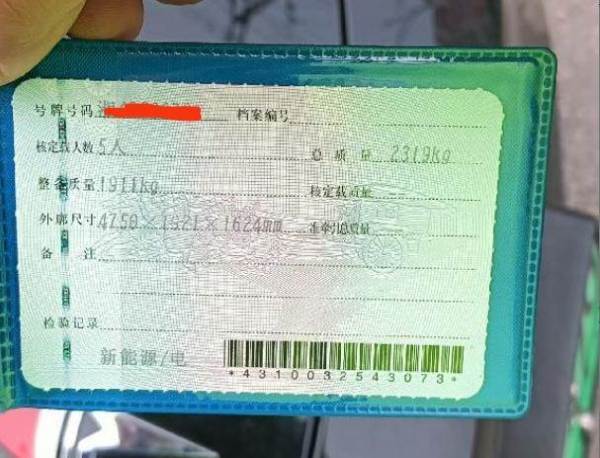 号牌号码 湘 档案编号
核定载人数 5人 总质量 2319kg
整备质量 1911kg 核定载质量 --
外廓尺寸 4750×1921×1624mm 准牵引总质量 --
备注
检验记录
新能源/电
*4310032543073*